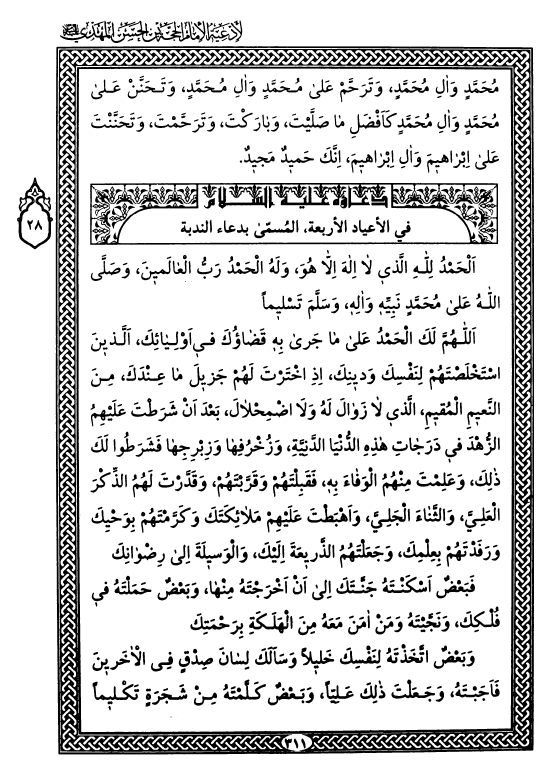 لأدعية الإمام الحجة بن الحسن المهدي
مُحَمَّدٍ وَاٰلِ مُحَمَّدٍ، وَتَرَحَّمْ عَلىٰ مُحَمَّدٍ وَاٰلِ مُحَمَّدٍ، وَتَحَنَّنْ عَلىٰ
مُحَمَّدٍ وَاٰلِ مُحَمَّدٍ كَاَفْضَلِ مٰا صَلَّيْتَ، وَبٰارَكْتَ، وَتَرَحَّمْتَ، وَتَحَنَّنْتَ
عَلىٰ اِبْراهيمَ وَاٰلِ اِبْراهيمَ، اِنَّكَ حَميدٌ مَجيدٌ.
٢٨
دعاؤه عليه السلام
في الأعياد الأربعة، المُسمّىٰ بدعاء الندبة
اَلْحَمْدُ لِلّٰهِ الَّذي لٰا اِلٰهَ اِلّٰا هُوَ، وَلَهُ الْحَمْدُ رَبُّ الْعٰالَمينَ، وَصَلَّى
اللّٰهُ عَلىٰ مُحَمَّدٍ نَبِيِّهِ وَاٰلِهِ، وَسَلَّمَ تَسْليماً
اَللّٰهُمَّ لَكَ الْحَمْدُ عَلىٰ مٰا جَرىٰ بِهِ قَضٰاؤُكَ في اَوْلِيٰائِكَ، اَلَّذينَ
اسْتَخْلَصْتَهُمْ لِنَفْسِكَ وَدينِكَ، اِذِ اخْتَرْتَ لَهُمْ جَزيلَ مٰا عِنْدَكَ، مِنَ
النَّعيمِ الْمُقيمِ، الَّذي لٰا زَوٰالَ لَهُ وَلَا اضْمِحْلٰالَ، بَعْدَ اَنْ شَرَطْتَ عَلَيْهِمُ
الزُّهْدَ في دَرَجٰاتِ هٰذِهِ الدُّنْيَا الدَّنِيَّةِ، وَزُخْرُفِهٰا وَزِبْرِجِهٰا فَشَرَطُوا لَكَ
ذٰلِكَ، وَعَلِمْتَ مِنْهُمُ الْوَفٰاءَ بِهِ، فَقَبِلْتَهُمْ وَقَرَّبْتَهُمْ، وَقَدَّرْتَ لَهُمُ الذِّكْرَ
الْعَلِيَّ، وَالثَّنٰاءَ الْجَلِيَّ، وَاَهْبَطْتَ عَلَيْهِمْ مَلٰائِكَتَكَ وَكَرَّمْتَهُمْ بِوَحْيِكَ
وَرَفَدْتَهُمْ بِعِلْمِكَ، وَجَعَلْتَهُمُ الذَّريعَةَ اِلَيْكَ، وَالْوَسيلَةَ اِلىٰ رِضْوٰانِكَ
فَبَعْضٌ اَسْكَنْتَهُ جَنَّتَكَ اِلىٰ اَنْ اَخْرَجْتَهُ مِنْهٰا، وَبَعْضٌ حَمَلْتَهُ في
فُلْكِكَ، وَنَجَّيْتَهُ وَمَنْ اٰمَنَ مَعَهُ مِنَ الْهَلَكَةِ بِرَحْمَتِكَ
وَبَعْضٌ اتَّخَذْتَهُ لِنَفْسِكَ خَليلاً وَسَأَلَكَ لِسٰانَ صِدْقٍ فِى الْاٰخَرينَ
فَاَجَبْتَهُ، وَجَعَلْتَ ذٰلِكَ عَلِيّاً، وَبَعْضٌ كَلَّمْتَهُ مِنْ شَجَرَةٍ تَكْليماً
٣١١